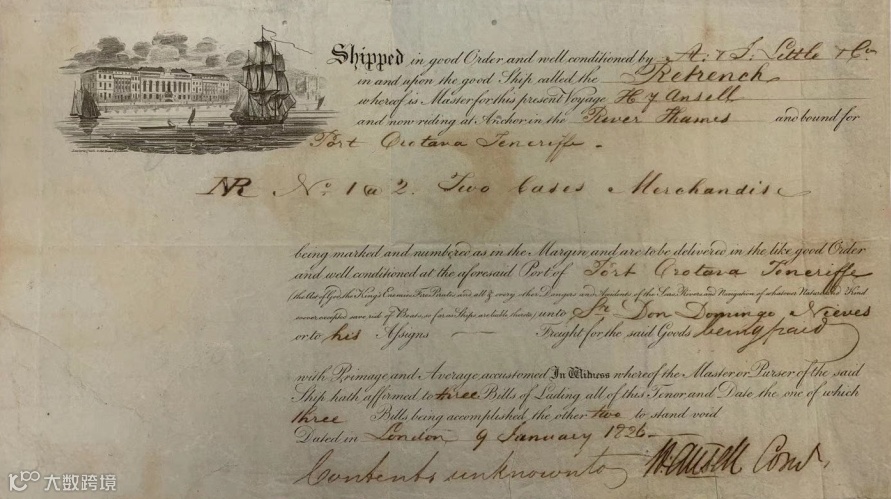 Shipped in good Order and well conditioned by A: & J: Little & Co
in and upon the good Ship called the Retrench
whereof is Master for this present Voyage H Y Ansell
and now riding at Anchor in the River Thames and bound for
Port Orotava Teneriffe -
NR No 1 @ 2. Two Cases Merchandise
being marked and numbered as in the Margin and are to be delivered in the like good Order
and well conditioned at the aforesaid Port of Port Orotava Teneriffe
(the Act of God the King's Enemies Fire Pirates and all & every other Dangers and Accidents of the Seas Rivers and Navigation of whatever Nature and Kind
soever excepted save risk of Boats, so far as Ships are liable thereto) unto Sr. Don Domingo Nieves
or to his Assigns Freight for the said Goods being paid
with Primage and Average accustomed In Witness whereof the Master or Purser of the said
Ship hath affirmed to three Bills of Lading all of this Tenor and Date the one of which
three Bills being accomplished the other two to stand void
Dated in London 9 January 1826
Contents unknown to H Y Ansell
大数跨境